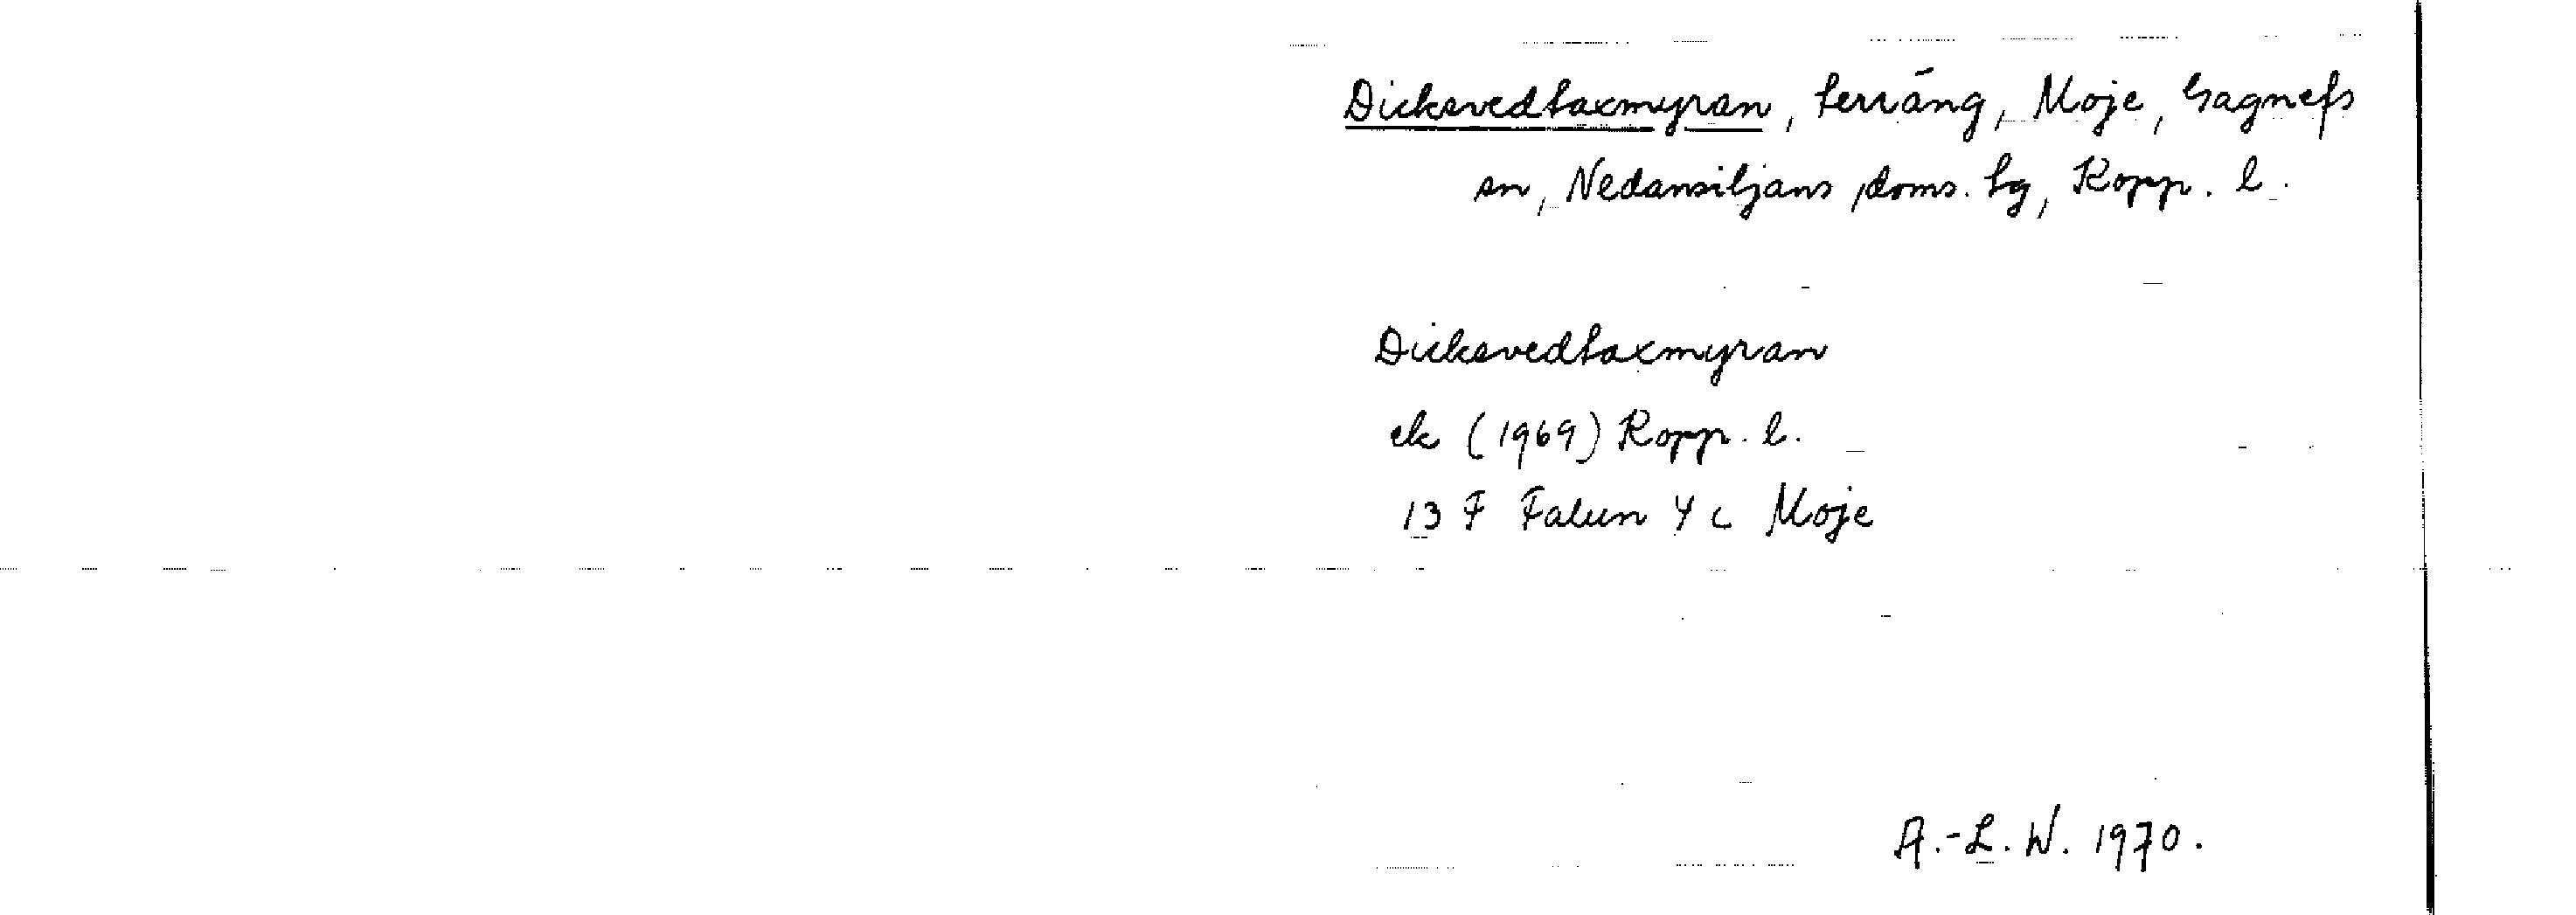 Dicksvedtaxmyran, terräng, Moje, Gagnefs
sn, Nedansiljans doms. tg, Kopp. l.
Dicksvedtaxmyran
ek (1969) Kopp. l.
13 F Falun 4 c Moje
A.-L. W. 1970.